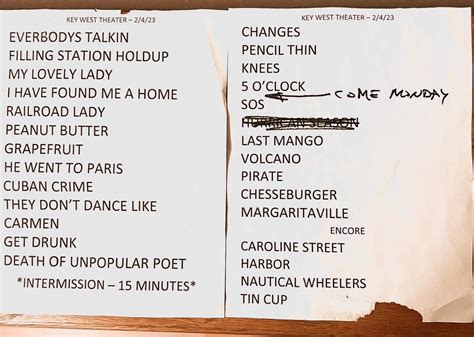 KEY WEST THEATER – 2/4/23
EVERBODYS TALKIN
FILLING STATION HOLDUP
MY LOVELY LADY
I HAVE FOUND ME A HOME
RAILROAD LADY
PEANUT BUTTER
GRAPEFRUIT
HE WENT TO PARIS
CUBAN CRIME
THEY DON'T DANCE LIKE
CARMEN
GET DRUNK
DEATH OF UNPOPULAR POET
*INTERMISSION – 15 MINUTES*
KEY WEST THEATER – 2/4/23
CHANGES
PENCIL THIN
KNEES
5 O'CLOCK
COME MONDAY
SOS
HURRICAN SEASON
LAST MANGO
VOLCANO
PIRATE
CHESSEBURGER
MARGARITAVILLE
ENCORE
CAROLINE STREET
HARBOR
NAUTICAL WHEELERS
TIN CUP